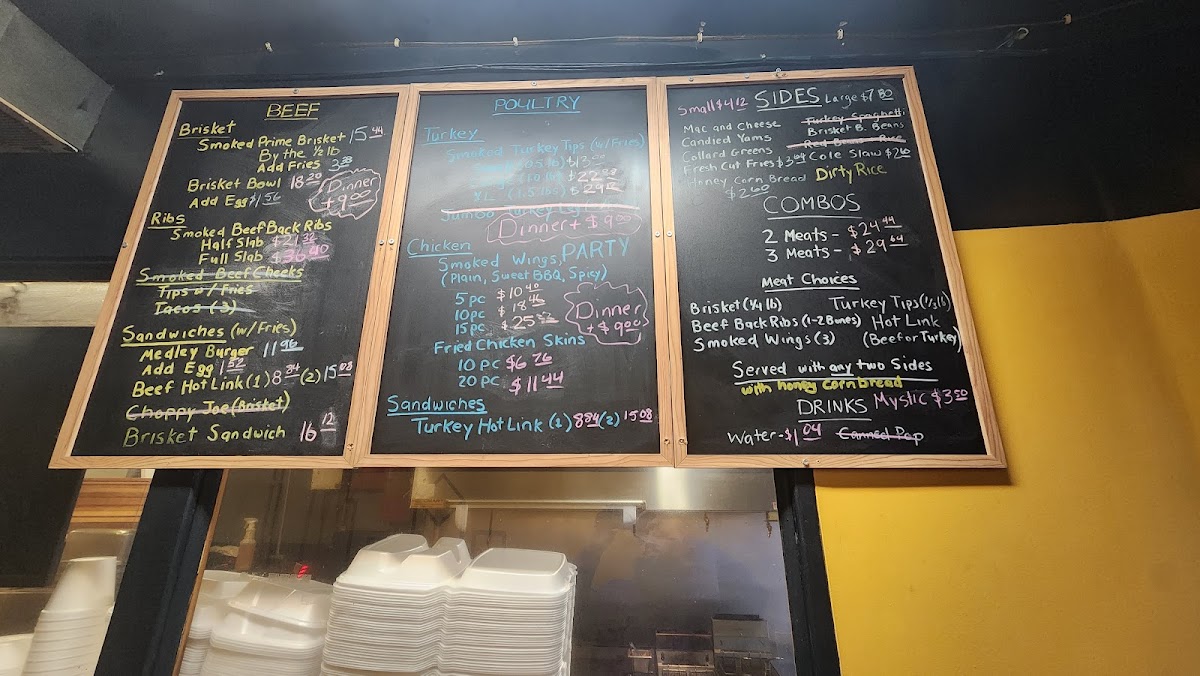 BEEF
Brisket
Smoked Prime Brisket 15.44
By the 1/2 lb
Add Fries 3.38
Brisket Bowl 18.20
Add Egg $1.56
Dinner
+9.00
Ribs
Smoked Beef Back Ribs
Half Slab $21.32
Full Slab $36.40
Smoked Beef Cheeks
Tips w/Fries
Tacos (3)
Sandwiches (w/Fries)
Medley Burger 11.96
Add Egg 1.52
Beef Hot Link (1) 8.84 (2) 15.08
Choppy Joe (Brisket)
Brisket Sandwich 16.12
POULTRY
Turkey
Smoked Turkey Tips (w/Fries)
XL (1.5 lbs) $29
Jumbo Turkey
Dinner + $9.00
Chicken
Smoked Wings, PARTY
(Plain, Sweet BBQ, Spicy)
5pc $10.40
10pc $18.46
15pc $25
Dinner
+$9.00
Fried Chicken Skins
10 pc $6.76
20 pc $11.44
Sandwiches
Turkey Hot Link (1) 8.84 (2) 15.08
Small $4.12 SIDES Large $7.80
Mac and Cheese
Candied Yams
Collard Greens
Fresh Cut Fries $3.64
Honey Corn Bread
$2.60
Turkey Spaghetti
Brisket B. Beans
Red Beans - Rice
Cole Slaw $2.60
Dirty Rice
COMBOS
2 Meats - $24.44
3 Meats - $29.64
Meat Choices
Brisket (1/4 lb)
Beef Back Ribs (1-2 Bones)
Smoked Wings (3)
Turkey Tips (1/3 lb)
Hot Link
(Beef or Turkey)
Served with any two Sides
with honey cornbread
DRINKS Mystic $3.50
Water - $1.04 Canned Pop